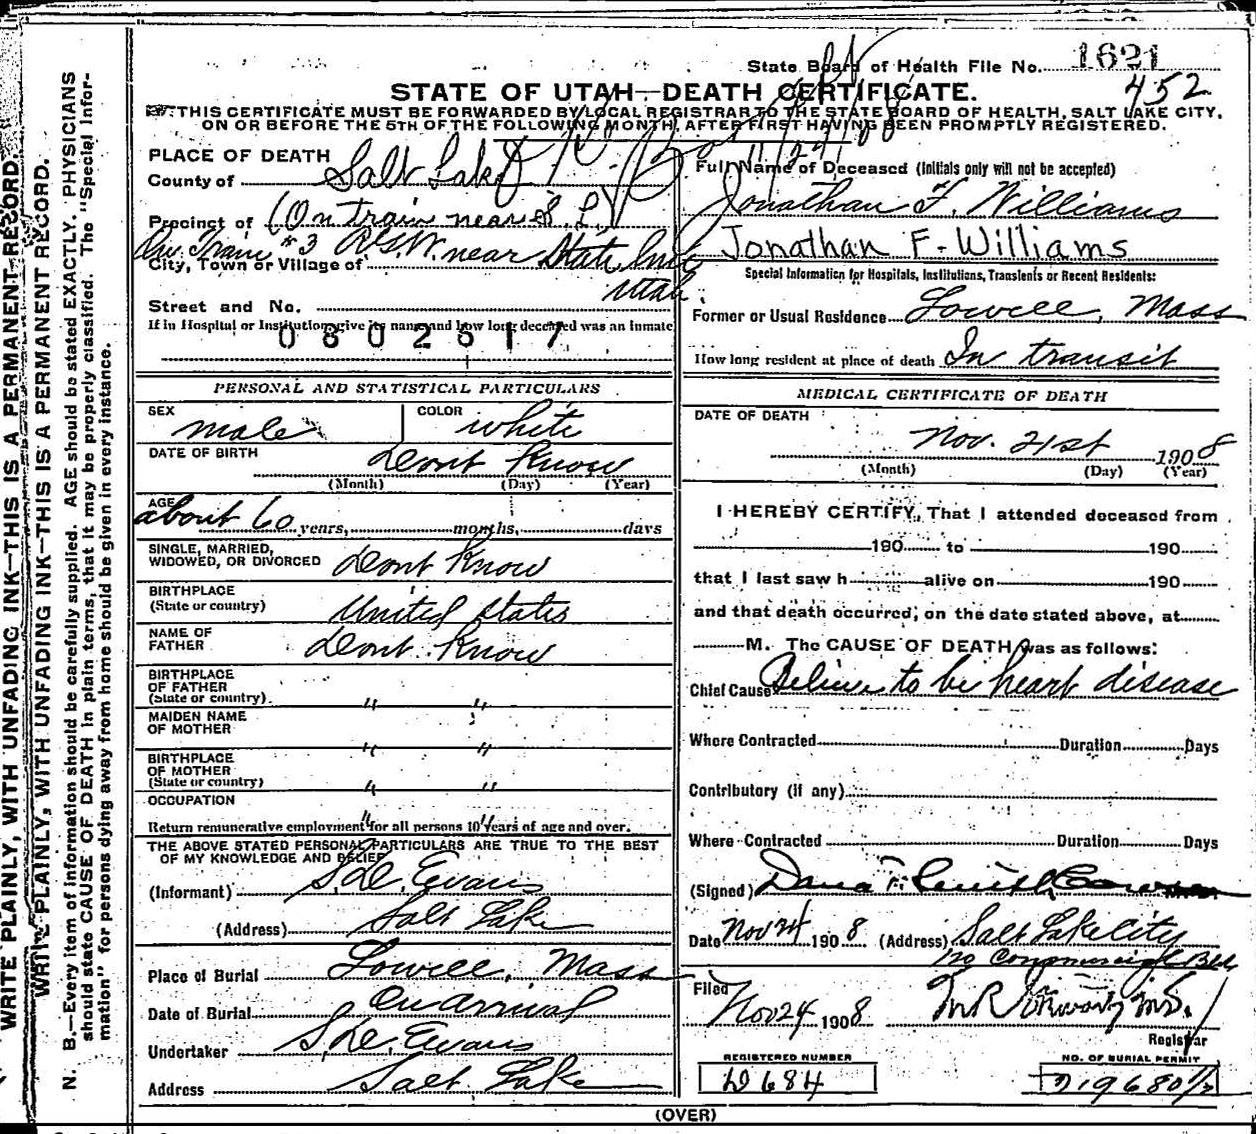 WRITE PLAINLY, WITH UNFADING INK—THIS IS A PERMANENT RECORD.
WRITE PLAINLY, WITH UNFADING INK—THIS IS A PERMANENT RECORD.
N. B.—Every item of information should be carefully supplied. AGE should be stated EXACTLY. PHYSICIANS
should state CAUSE OF DEATH in plain terms, that it may be properly classified. The "Special Infor-
mation" for persons dying away from home should be given in every instance.
State Board of Health File No. 1621
452
STATE OF UTAH—DEATH CERTIFICATE.
THIS CERTIFICATE MUST BE FORWARDED BY LOCAL REGISTRAR TO THE STATE BOARD OF HEALTH, SALT LAKE CITY,
ON OR BEFORE THE 5TH OF THE FOLLOWING MONTH, AFTER FIRST HAVING BEEN PROMPTLY REGISTERED.
11/24/08
PLACE OF DEATH
County of Salt Lake
Precinct of (On train near S. L.)
On Train #3 R.G.W. near State Line
City, Town or Village of
Utah.
Street and No.
If in Hospital or Institution, give its name and how long deceased was an inmate
0802617
PERSONAL AND STATISTICAL PARTICULARS
SEX male COLOR white
DATE OF BIRTH Dont Know
(Month) (Day) (Year)
AGE about 60 years, months, days
SINGLE, MARRIED,
WIDOWED, OR DIVORCED Dont Know
BIRTHPLACE
(State or country) United States
NAME OF
FATHER Dont Know
BIRTHPLACE
OF FATHER
(State or country) " "
MAIDEN NAME
OF MOTHER " "
BIRTHPLACE
OF MOTHER
(State or country) " "
OCCUPATION
Return remunerative employment for all persons 10 years of age and over. " "
THE ABOVE STATED PERSONAL PARTICULARS ARE TRUE TO THE BEST
OF MY KNOWLEDGE AND BELIEF
(Informant) S. D. Evans
(Address) Salt Lake
Place of Burial Lowell, Mass
Date of Burial On arrival
Undertaker S. D. Evans
Address Salt Lake
Full Name of Deceased (Initials only will not be accepted)
Jonathan F. Williams
Jonathan F. Williams
Special Information for Hospitals, Institutions, Transients or Recent Residents:
Former or Usual Residence Lowell, Mass
How long resident at place of death In transit
MEDICAL CERTIFICATE OF DEATH
DATE OF DEATH
Nov. 21st 1908
(Month) (Day) (Year)
I HEREBY CERTIFY, That I attended deceased from
190 to 190
that I last saw h alive on 190
and that death occurred, on the date stated above, at
M. The CAUSE OF DEATH was as follows:
Chief Cause Believe to be heart disease
Where Contracted Duration Days
Contributory (if any)
Where Contracted Duration Days
(Signed) Dana T. Smith
Date Nov 24 1908 (Address) Salt Lake City
Filed Nov 24 1908
Registrar
REGISTERED NUMBER
D 684
NO. OF BURIAL PERMIT
(OVER)